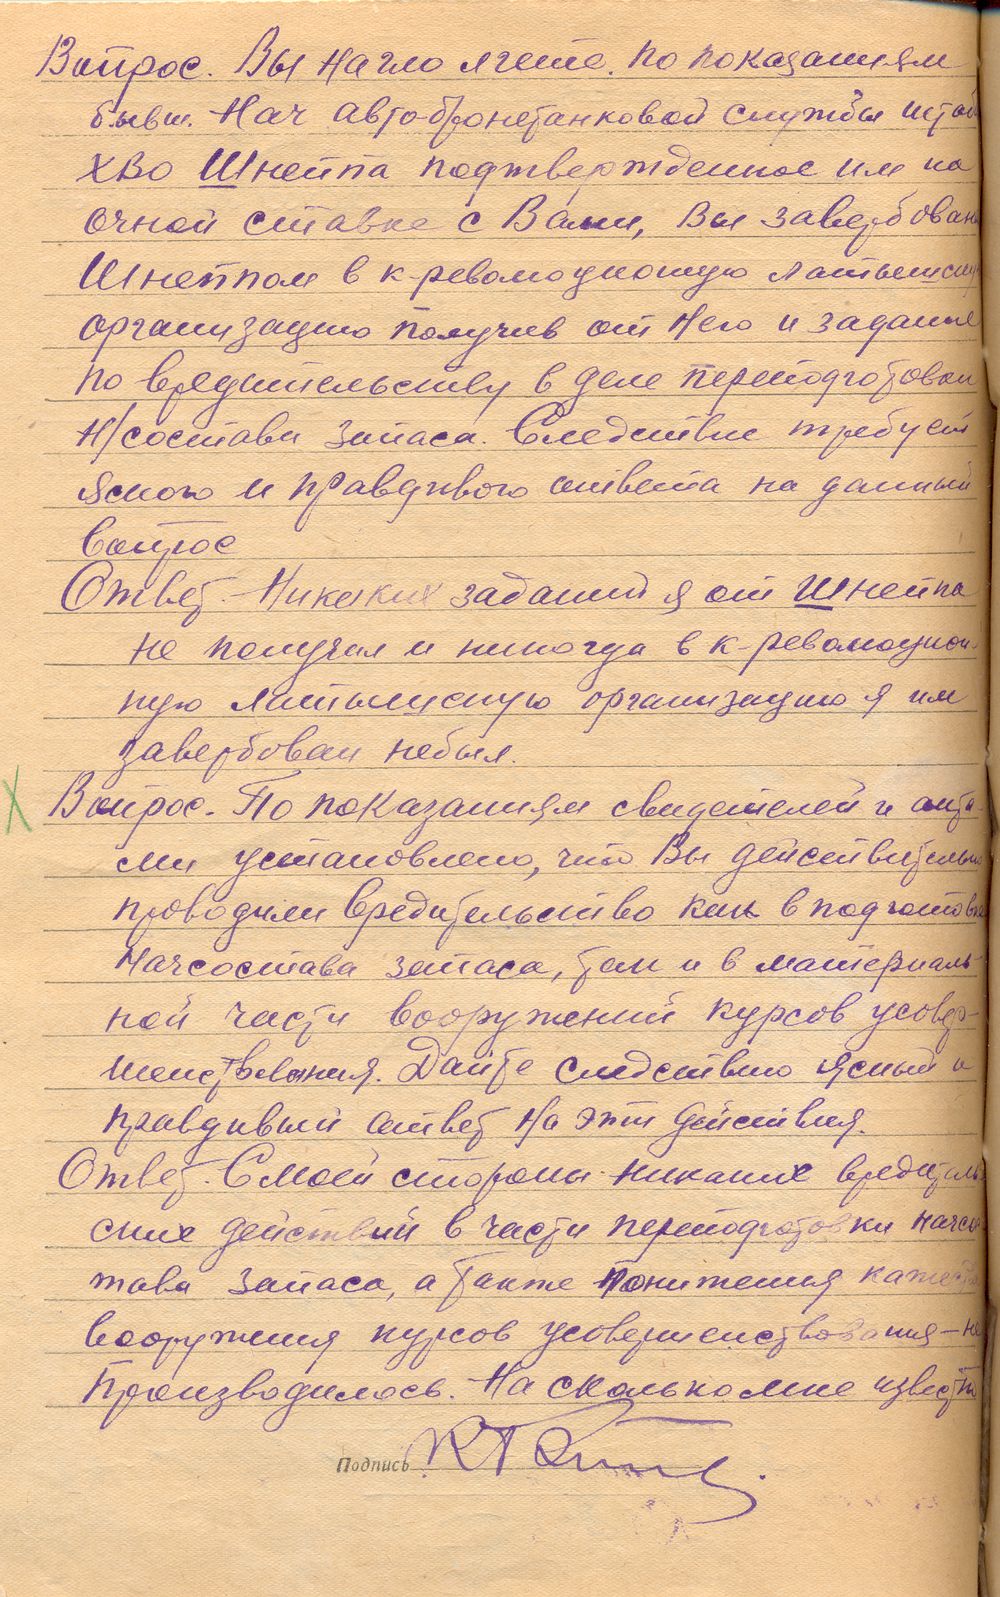 Вопрос. Вы нагло лжете. По показаниям
бывш. Нач автобронетанковой службы штаба
ХВО Шнейпа подтвержденное им на
очной ставке с Вами, Вы завербованы
Шнейпом в к-революционую латышскую
организацию получив от него и задание
по вредительству в деле переподготовки
н/состава запаса. Следствие требует
ясного и правдивого ответа на данный
вопрос
Ответ. Никаких заданий я от Шнейпа
не получал и никогда в к-революцион-
ную латышскую организацию я им
завербован небыл.
Х Вопрос. По показаниям свидетелей и
установлено, что Вы действительно
проводили вредительство как в подготовке
начсостава запаса, так и в материаль-
ной части вооружений курсов усовер-
шенствования. Дайте следствию ясный и
правдивый ответ на эти действия.
Ответ. С моей стороны никаких вредитель-
ских действий в части переподготовки начсос-
тава запаса, а также понижения качества
вооружения курсов усовершенствования – не
производилось. На сколько мне известно
Подпись